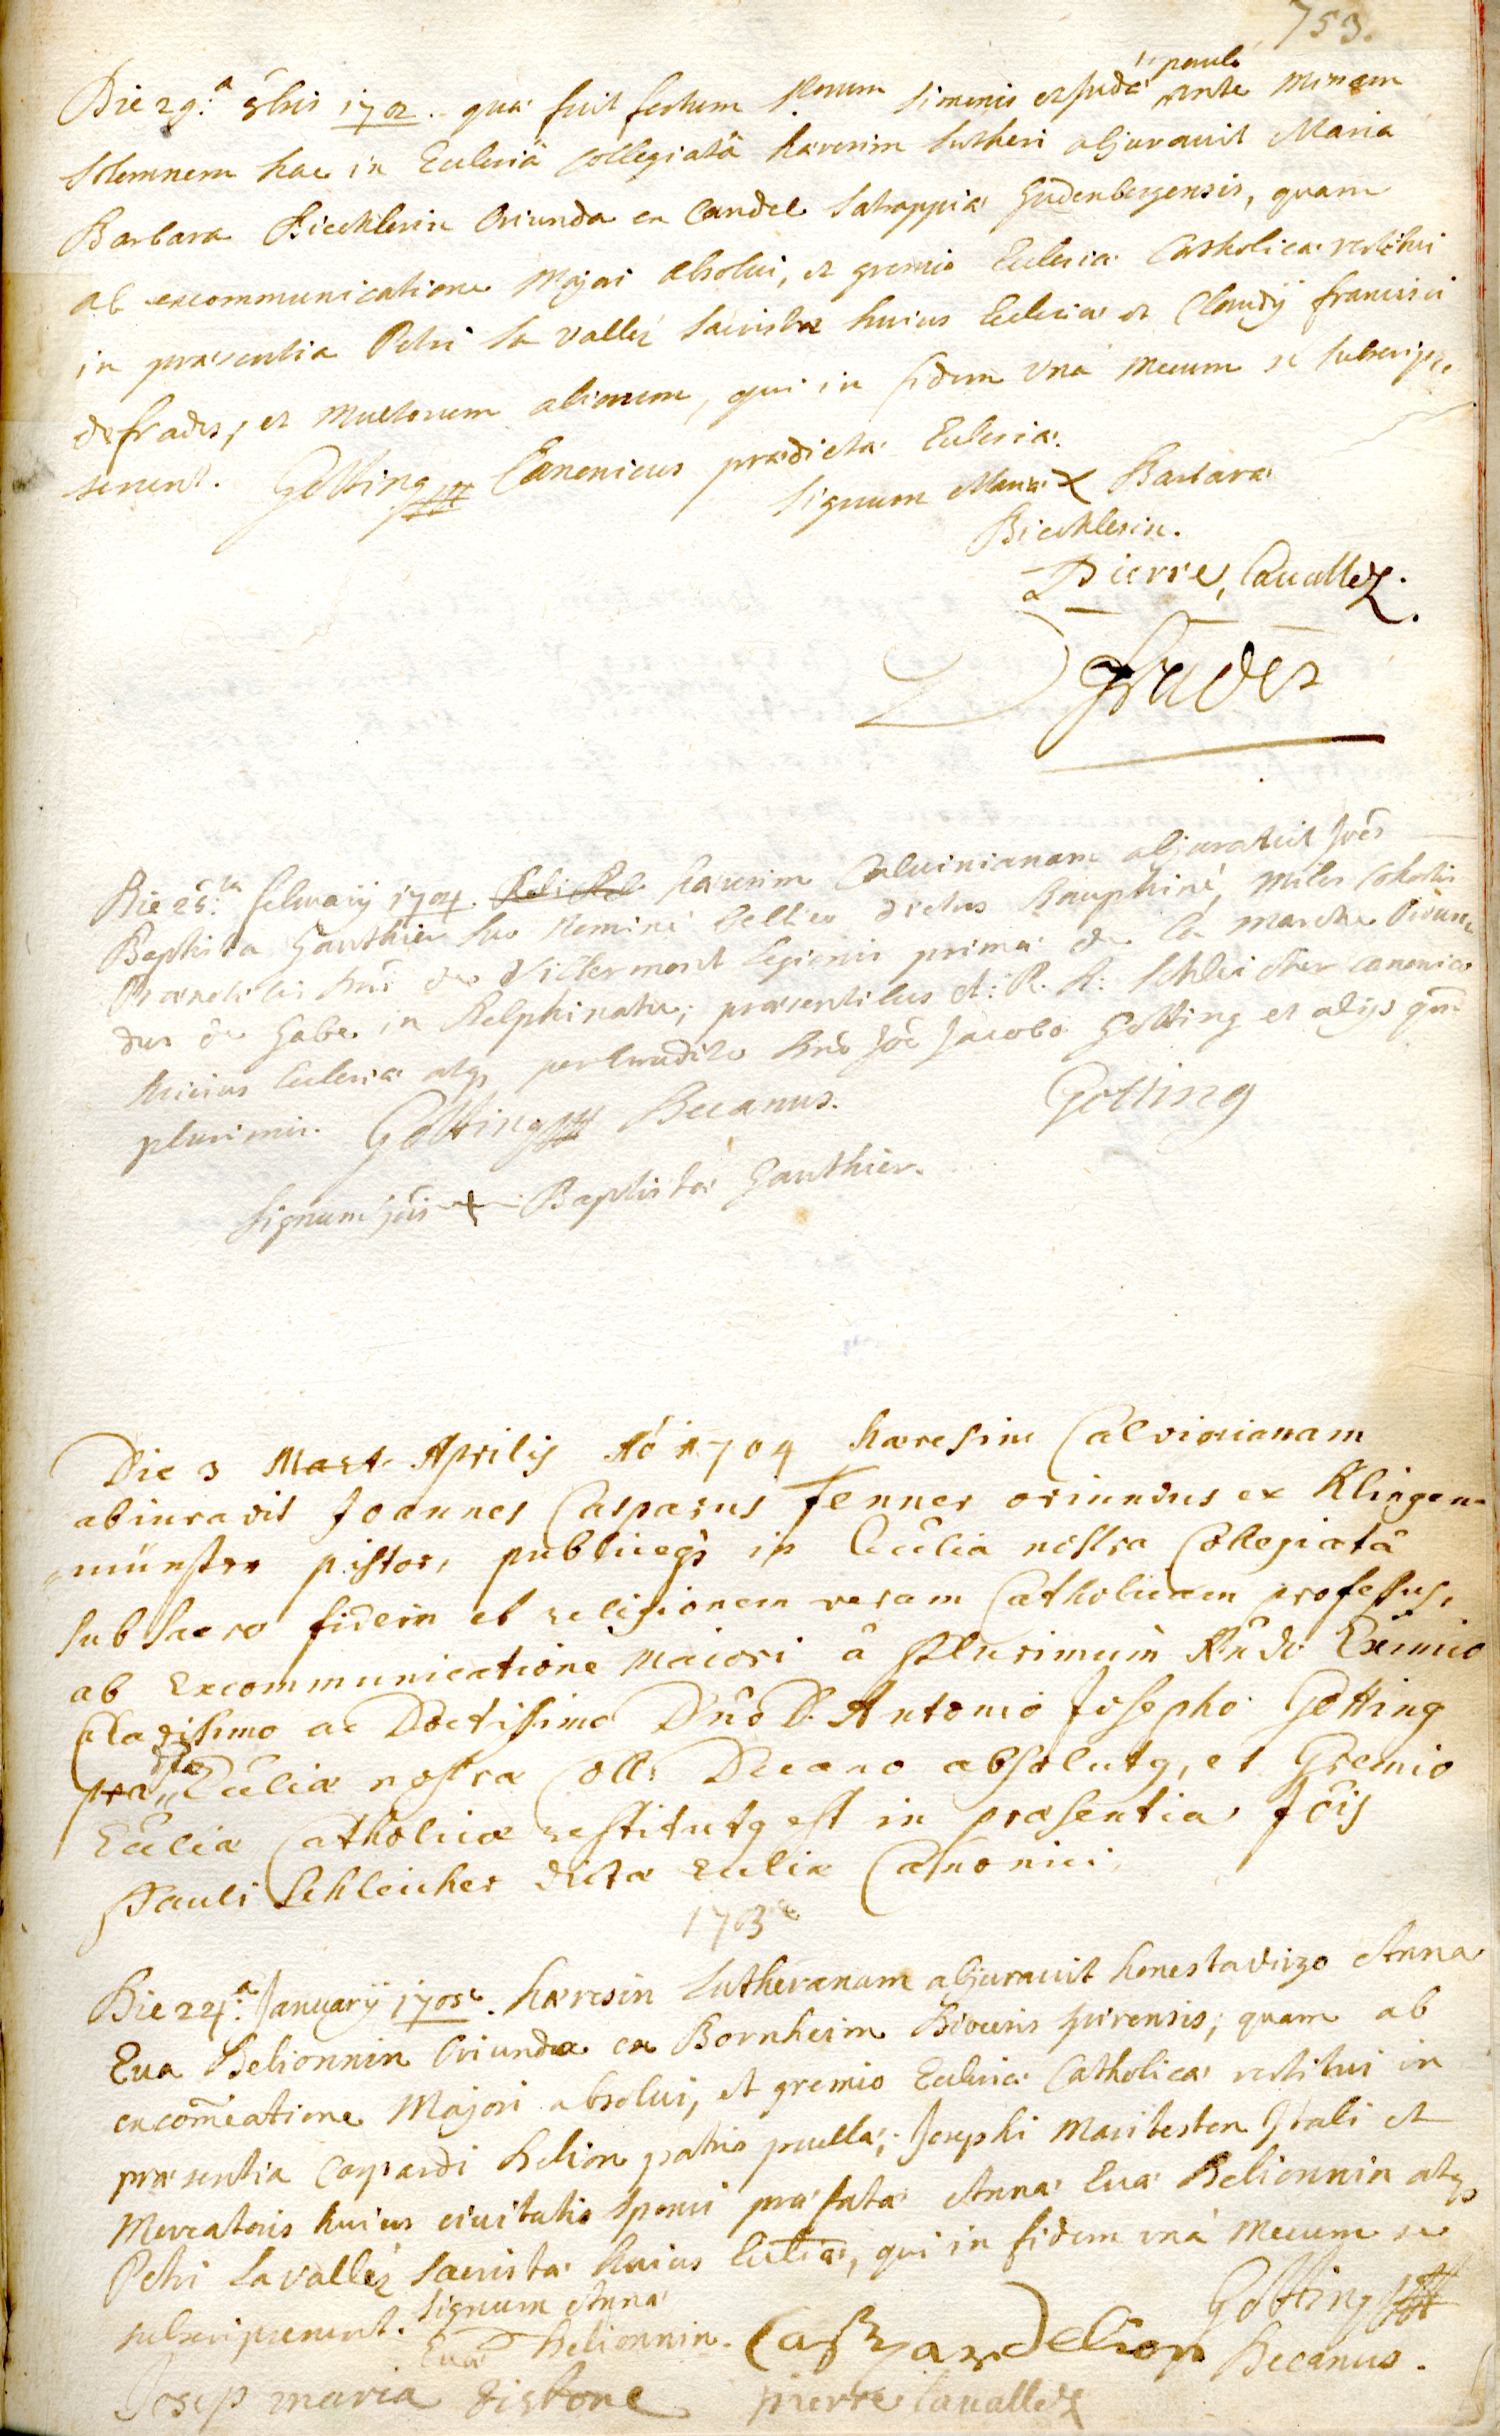 753.
paulò
Die 29.a 8bris 1702. quâ fuit festum SSorum Simonis et Judæ ante Missam
solemnem hac in Ecclesiâ Collegiatâ hæresim Lutheri abjuravit Maria
Barbara Biecklerin Oriunda ex Candel Satrappiæ Gudenbergensis, quam
ab excommunicatione Majori absolui, et gremio Ecclesiæ Catholicæ restitui
in præsentia Petri la Vallèz sacristæ huius Ecclesiæ et Claudÿ francisci
de frades, et multorum aliorum, qui in fidem unà mecum se subscripse„
runt. Gotting Canonicus prædictæ Ecclesiæ.
Signum Mariæ X Barbaræ
Biecklerin.
Pierre, Lauallez.
D frades
Die 25.ta februarÿ 1704. hæresim Calvinianam abjuravit Joês
Baptista Gauthier suo Nomine bellico dictus Dauphiné, Miles Cohortis
Prænobilis Dni de Villermont legionis primæ de la Marche Oriun„
dus de Gabe in Delphinatu; præsentibus A: R. D: Schleicher canonico
huius Ecclesiæ atq, pererudito Dnô Joê Jacobo Gotting et alÿs quā
plurimis. Gotting Decanus. Gotting
Signum Jois + Baptistæ Gauthier.
Die 3 Mart. Aprilis Aô 1704 hæresim Calvinianam
abiuravit Joannes Casparus Fenner oriundus ex Klingen„
„münster pistor, publiceq3 in Ecclia nostra Collegiatâ
sub sacro fidem et religionem veram Catholicam professus,
ab Excommunicatione maiori â Plurimùm Rndo Eximio
Clarissimo ac Doctissimo Dnô D. Antonio Josepho Gotting
dtæ
præ„ Eccliæ nostræ Coll: Decano absolutq, et Gremio
Eccliæ Catholicæ restitutq est in præsentia Jôis
Pauli Schleicher dictæ Eccliæ Canonici.
1705
Die 24.a Januarÿ 1705. hæresin Lutheranam abjuravit honesta virgo Anna
Eua Delionnin Oriunda ex Bornheim Diocesis spirensis; quam ab
excomeatione Majori absolui, et gremio Ecclesiæ Catholicæ restitui in
præsentia Caspardi Delion patris puellæ; Josephi Maritesten Itali et
Mercatoris huius ciuitatis sponsi præfatæ Annæ Euæ Delionnin atq3
Petri Lavallèz sacristæ huius Eccliæ, qui in fidem unà mecum se
subscripserunt. Signum Annæ Gotting
Euæ Delionnin. Caspar Delion Decanus.
Josep maria Pierre Lauallez